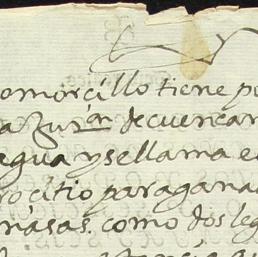 emorcillo tiene pe
a Jur.on de cuencam
agua y se llama e
ro citio para gana
nasas. como dos leg